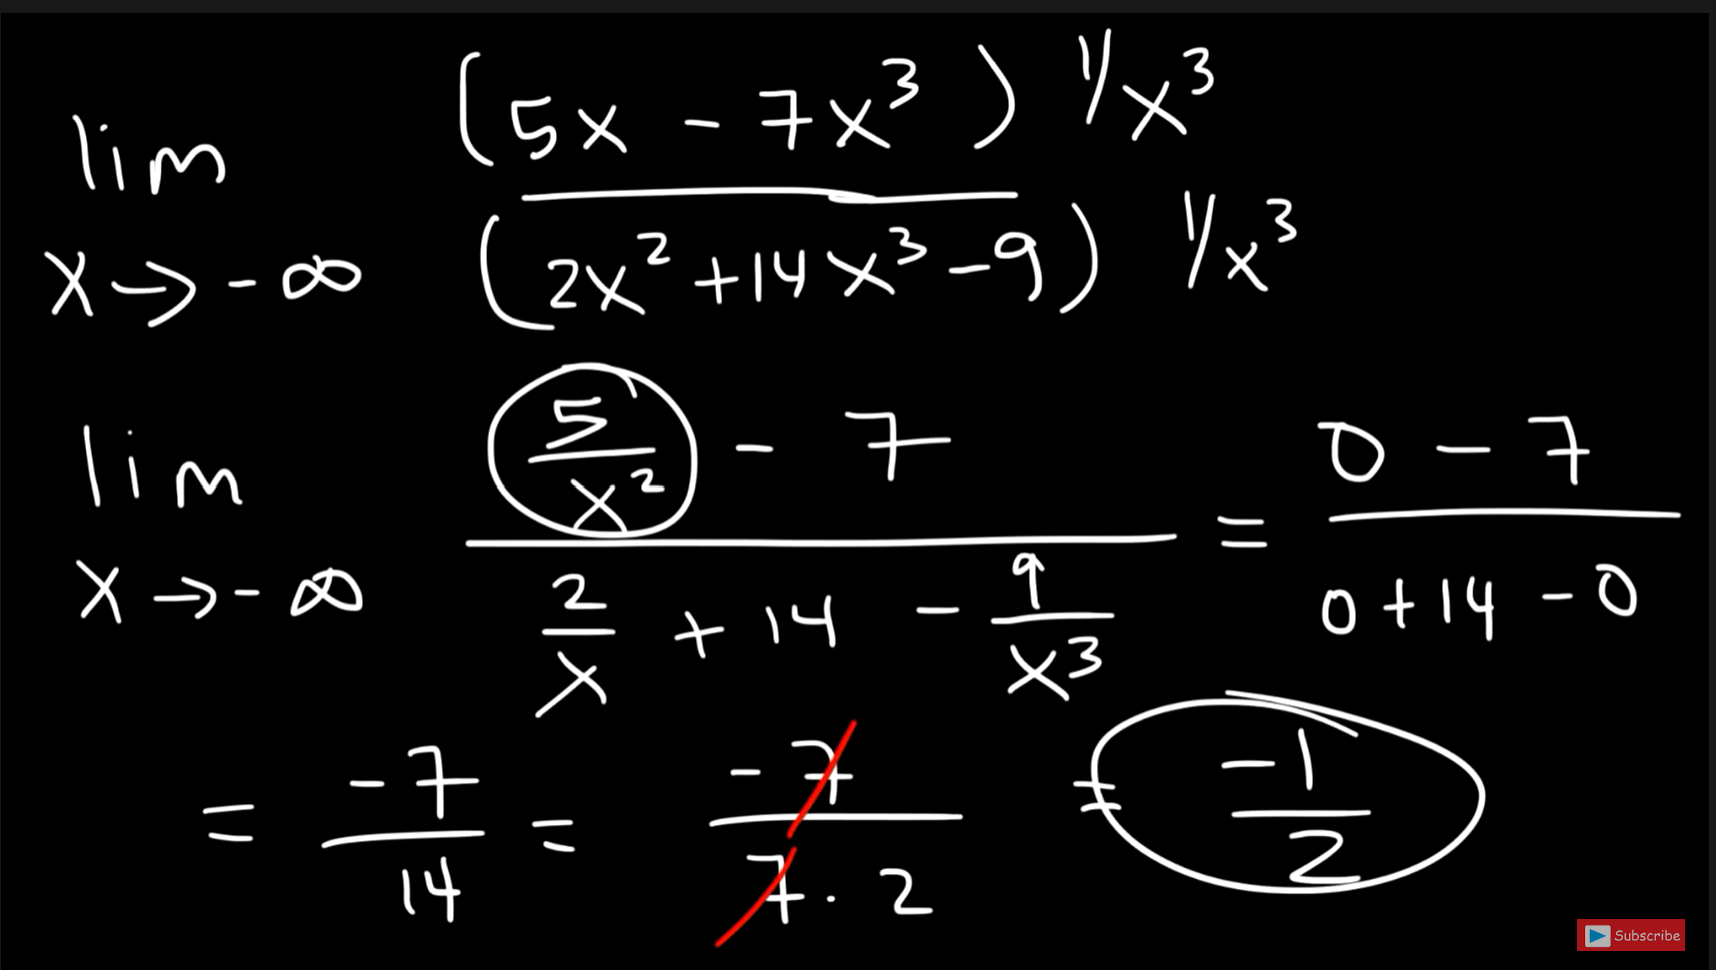 lim x→-∞ (5x - 7x³) 1/x³ / (2x² + 14x³ - 9) 1/x³
lim x→-∞ (5/x² - 7) / (2/x + 14 - 9/x³) = (0 - 7) / (0 + 14 - 0)
= -7/14 = -7/(7 · 2) = -1/2
Subscribe